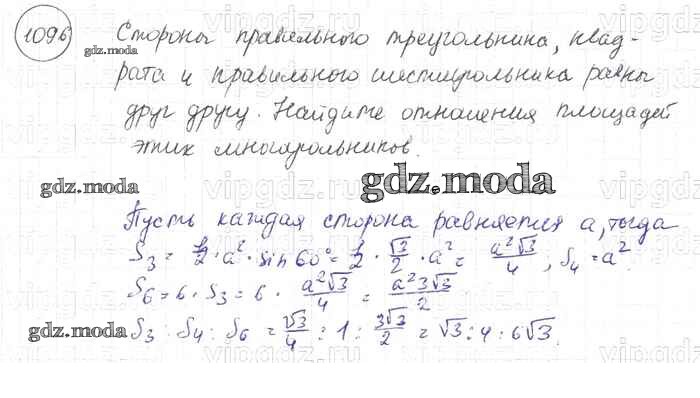 1096
Стороны правильного треугольника, квад-
рата и правильного шестиугольника равны
друг другу. Найдите отношения площадей
этих многоугольников.
gdz.moda
gdz.moda
gdz.moda
Пусть каждая сторона равняется a, тогда
S₃ = 1/2 · a² · sin 60° = 1/2 · √3/2 · a² = a²√3/4 ; S₄ = a².
S₆ = 6 · S₃ = 6 · a²√3/4 = a²3√3/2
gdz.moda
S₃ : S₄ : S₆ = √3/4 : 1 : 3√3/2 = √3 : 4 : 6√3.